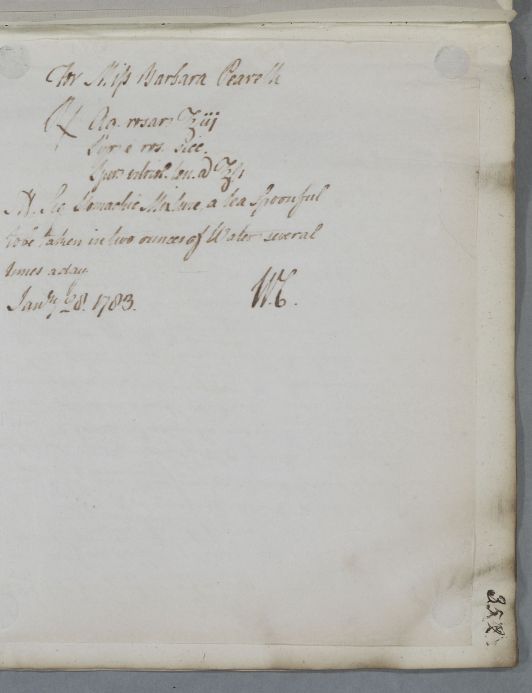 For Miss Barbara
℞ Aq. rosar. ℥iij
Syr. e ros. sicc.
Spir. vitriol. ten. a ʒß
Stomachic Mixture, a tea Spoonful
to be taken in two ounces of Water several
times a day
Jan.ry 28. 1783. W.C.
358